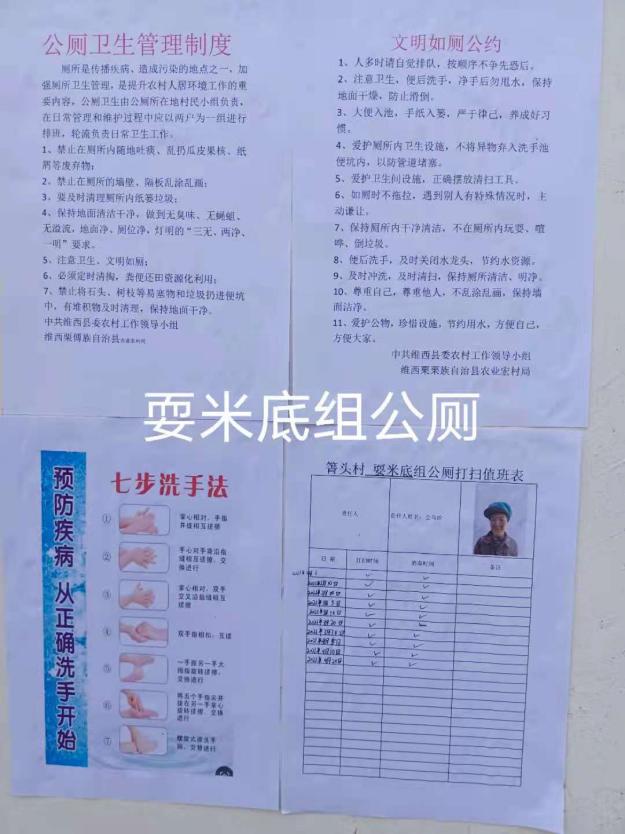 公厕卫生管理制度
厕所是传播疾病、造成污染的地点之一，加
强厕所卫生管理，是提升农村人居环境工作的重
要内容，公厕卫生由公厕所在地村民小组负责，
在日常管理和维护过程中应以两户为一组进行
排班，轮流负责日常卫生工作。
1、禁止在厕所内随地吐痰、乱扔瓜皮果核、纸
屑等废弃物；
2、禁止在厕所的墙壁、隔板乱涂乱画；
3、要及时清理厕所内纸篓垃圾；
4、保持地面清洁干净，做到无臭味、无蝇蛆、
无溢流，地面净、厕位净、灯明的“三无、两净、
一明”要求。
5、注意卫生、文明如厕；
6、必须定时清掏，粪便还田资源化利用；
7、禁止将石头、树枝等易塞物和垃圾扔进便坑
中，有堆积物及时清理，保持地面干净。
中共维西县委农村工作领导小组
维西栗僳族自治县
文明如厕公约
1、人多时请自觉排队，按顺序不争先恐后。
2、注意卫生，便后洗手，净手后勿甩水，保持
地面干燥，防止滑倒。
3、大便入池，手纸入篓，严于律己，养成好习
惯。
4、爱护厕所内卫生设施，不将异物弃入洗手池
便坑内，以防管道堵塞。
5、爱护卫生间设施，正确摆放清扫工具。
6、如厕时不拖拉，遇到别人有特殊情况时，主
动谦让。
7、保持厕所内干净清洁，不在厕所内玩耍、喧
哗、倒垃圾。
8、便后洗手，及时关闭水龙头，节约水资源。
9、及时冲洗，及时清扫，保持厕所清洁、明净。
10、尊重自己，尊重他人，不乱涂乱画，保持墙
面洁净。
11、爱护公物，珍惜设施，节约用水，方便自己，
方便大家。
中共维西县委农村工作领导小组
维西栗栗族自治县农业宏村局
耍米底组公厕
预防疾病 从正确洗手开始
七步洗手法
① 掌心相对，手指
并拢相互搓擦
② 手心对手背沿指
缝相互搓擦，交
换进行
③ 掌心相对，双手
交叉沿指缝相互
搓擦
④ 双手指相扣，互搓
⑤ 一手握另一手大
拇指旋转搓擦，
交换进行
⑥ 将五个手指尖并
拢在另一手掌心
旋转搓擦，交换
进行
⑦ 螺旋式擦洗手
腕，交替进行
箐头村 耍米底组公厕打扫值班表
责任人
责任人姓名：
日 期 打扫时间 消毒时间 备注